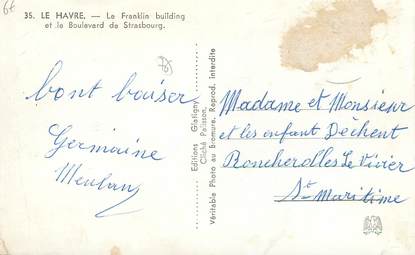 6€
35. LE HAVRE. — Le Franklin building
et le Boulevard de Strasbourg.
bont baiser
Germaine
Meulan
Editions Glatigny
Cliché Palisson.
Véritable Photo au Bromure. Reprod. interdite
Madame et Monsieur
et les enfant Déchent
Roncherolles Le Vivier
Ste Maritime